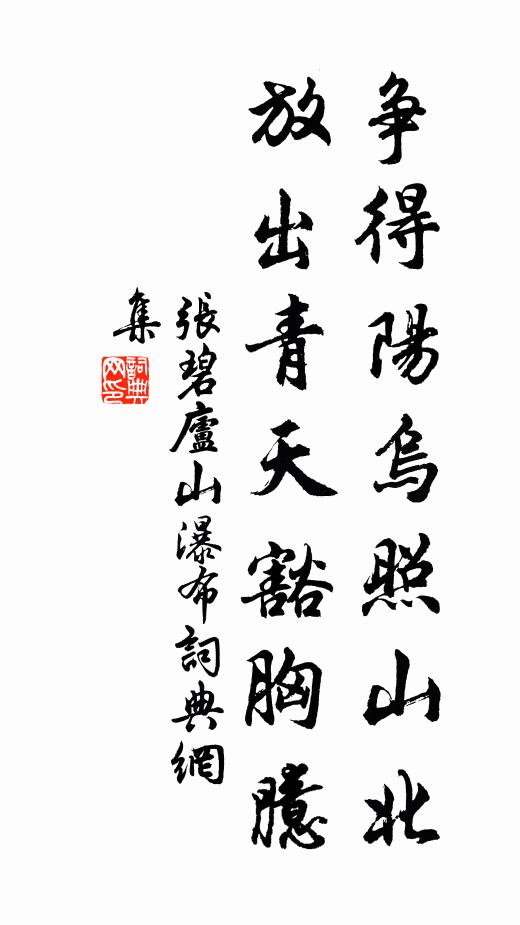 争得陽烏照山北
放出青天豁胸臆
張碧廬山瀑布詞典網
集
詞典
网印